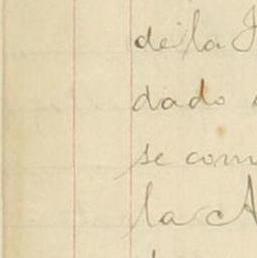 de la
dado
se com
la A